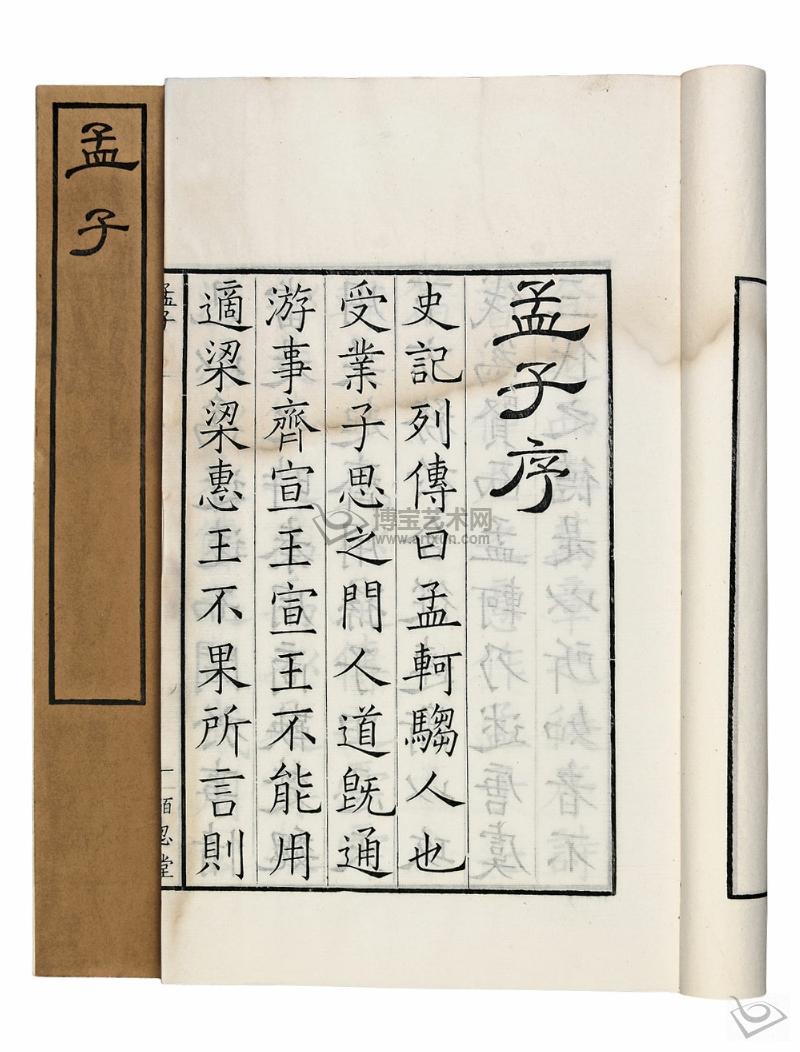 孟子
孟子序
史記列傳曰孟軻騶人也
受業子思之門人道旣通
游事齊宣王宣王不能用
適梁梁惠王不果所言則
孟子
博宝艺术网
www.artxun.com